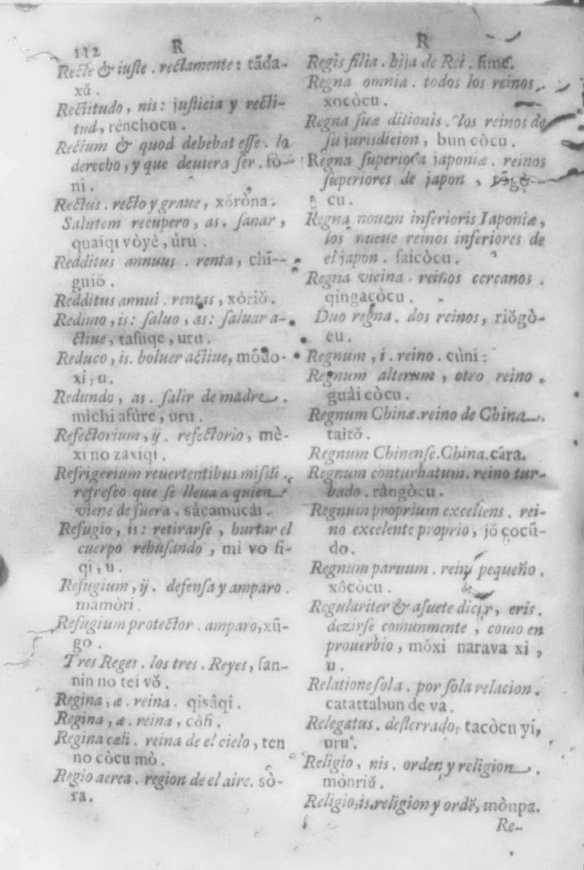 112 R
Recte & iuste . rectamente: tãda-
xũ.
Rectitudo, nis: justicia y recti-
tud, rènchocu .
Rectium & quod debebat esse. lo
derecho, y que deuiera ser. fò-
ni .
Rectus. recto y graue, xóròna.
Salutem recupero, as. sanar,
quaiqi vòyé, ùru .
Redditus annuus . renta, chi-
guiŏ.
Redditus annui. rentas, xòriŏ.
Redimo, is: saluo, as: saluar a-
ctiue, tasuqe, uru.
Reduco, is. boluer actiue, mŏdo-
xi, u.
Redundo, as. salir de madre.
michi afùre, uru .
Refectorium, ij. refectorio, mè-
xi no zàxiqi .
Refrigerium reuertentibus missũ.
refresco que se lleua a quien
viene de fuera. sàcamucài.
Refugio, is: retirarse, hurtar el
cuerpo rehusando, mi vo fi-
qi, u.
Refugium, ij. defensa y amparo.
mamòri.
Refugium protector. amparo, xũ-
go.
Tres Reges. los tres. Reyes, san-
nin no tei vŏ.
Regina, æ. reina. qisàqi.
Regina, æ. reina, cŏfi.
Regina cæli. reina de el cielo, ten
no còcu mò.
Regio aerea. region de el aire. sò-
ra.
R
Regis filia. hija de Rei. fime.
Regna omnia. todos los reinos.
xocòcu.
Regna suæ ditionis. los reinos de
su jurisdicion, bun còcu.
Regna superiora japoniæ. reinos
superiores de japon,
cu.
Regna nouem inferioris Iaponiæ,
los nueue reinos inferiores de
el japon. saicòcu.
Regna vicina. reinos cercanos.
qingàcòcu.
Duo regna. dos reinos, riŏgò-
cu.
Regnum, i. reino. cùni:
Regnum alterum, otro reino.
guài còcu.
Regnum Chinæ. reino de China.
taitŏ.
Regnum Chinense. China. cára.
Regnum conturbatum. reino tur-
bado. ràngòcu.
Regnum proprium excellens. rei-
no excelente proprio, jŏ cocũ-
do.
Regnum paruum. reino pequeño.
xŏcòcu.
Regulariter & asuete dicor, eris.
dezirse comunmente, como en
prouerbio, mòxi narava xi,
u.
Relatione sola. por sola relacion.
catattabun de va.
Relegatus. desterrado, tacòcu yi,
uru.
Religio, nis. orden y religion.
mònriŭ.
Religio, is. religion y ordẽ, mònpa.
Re-